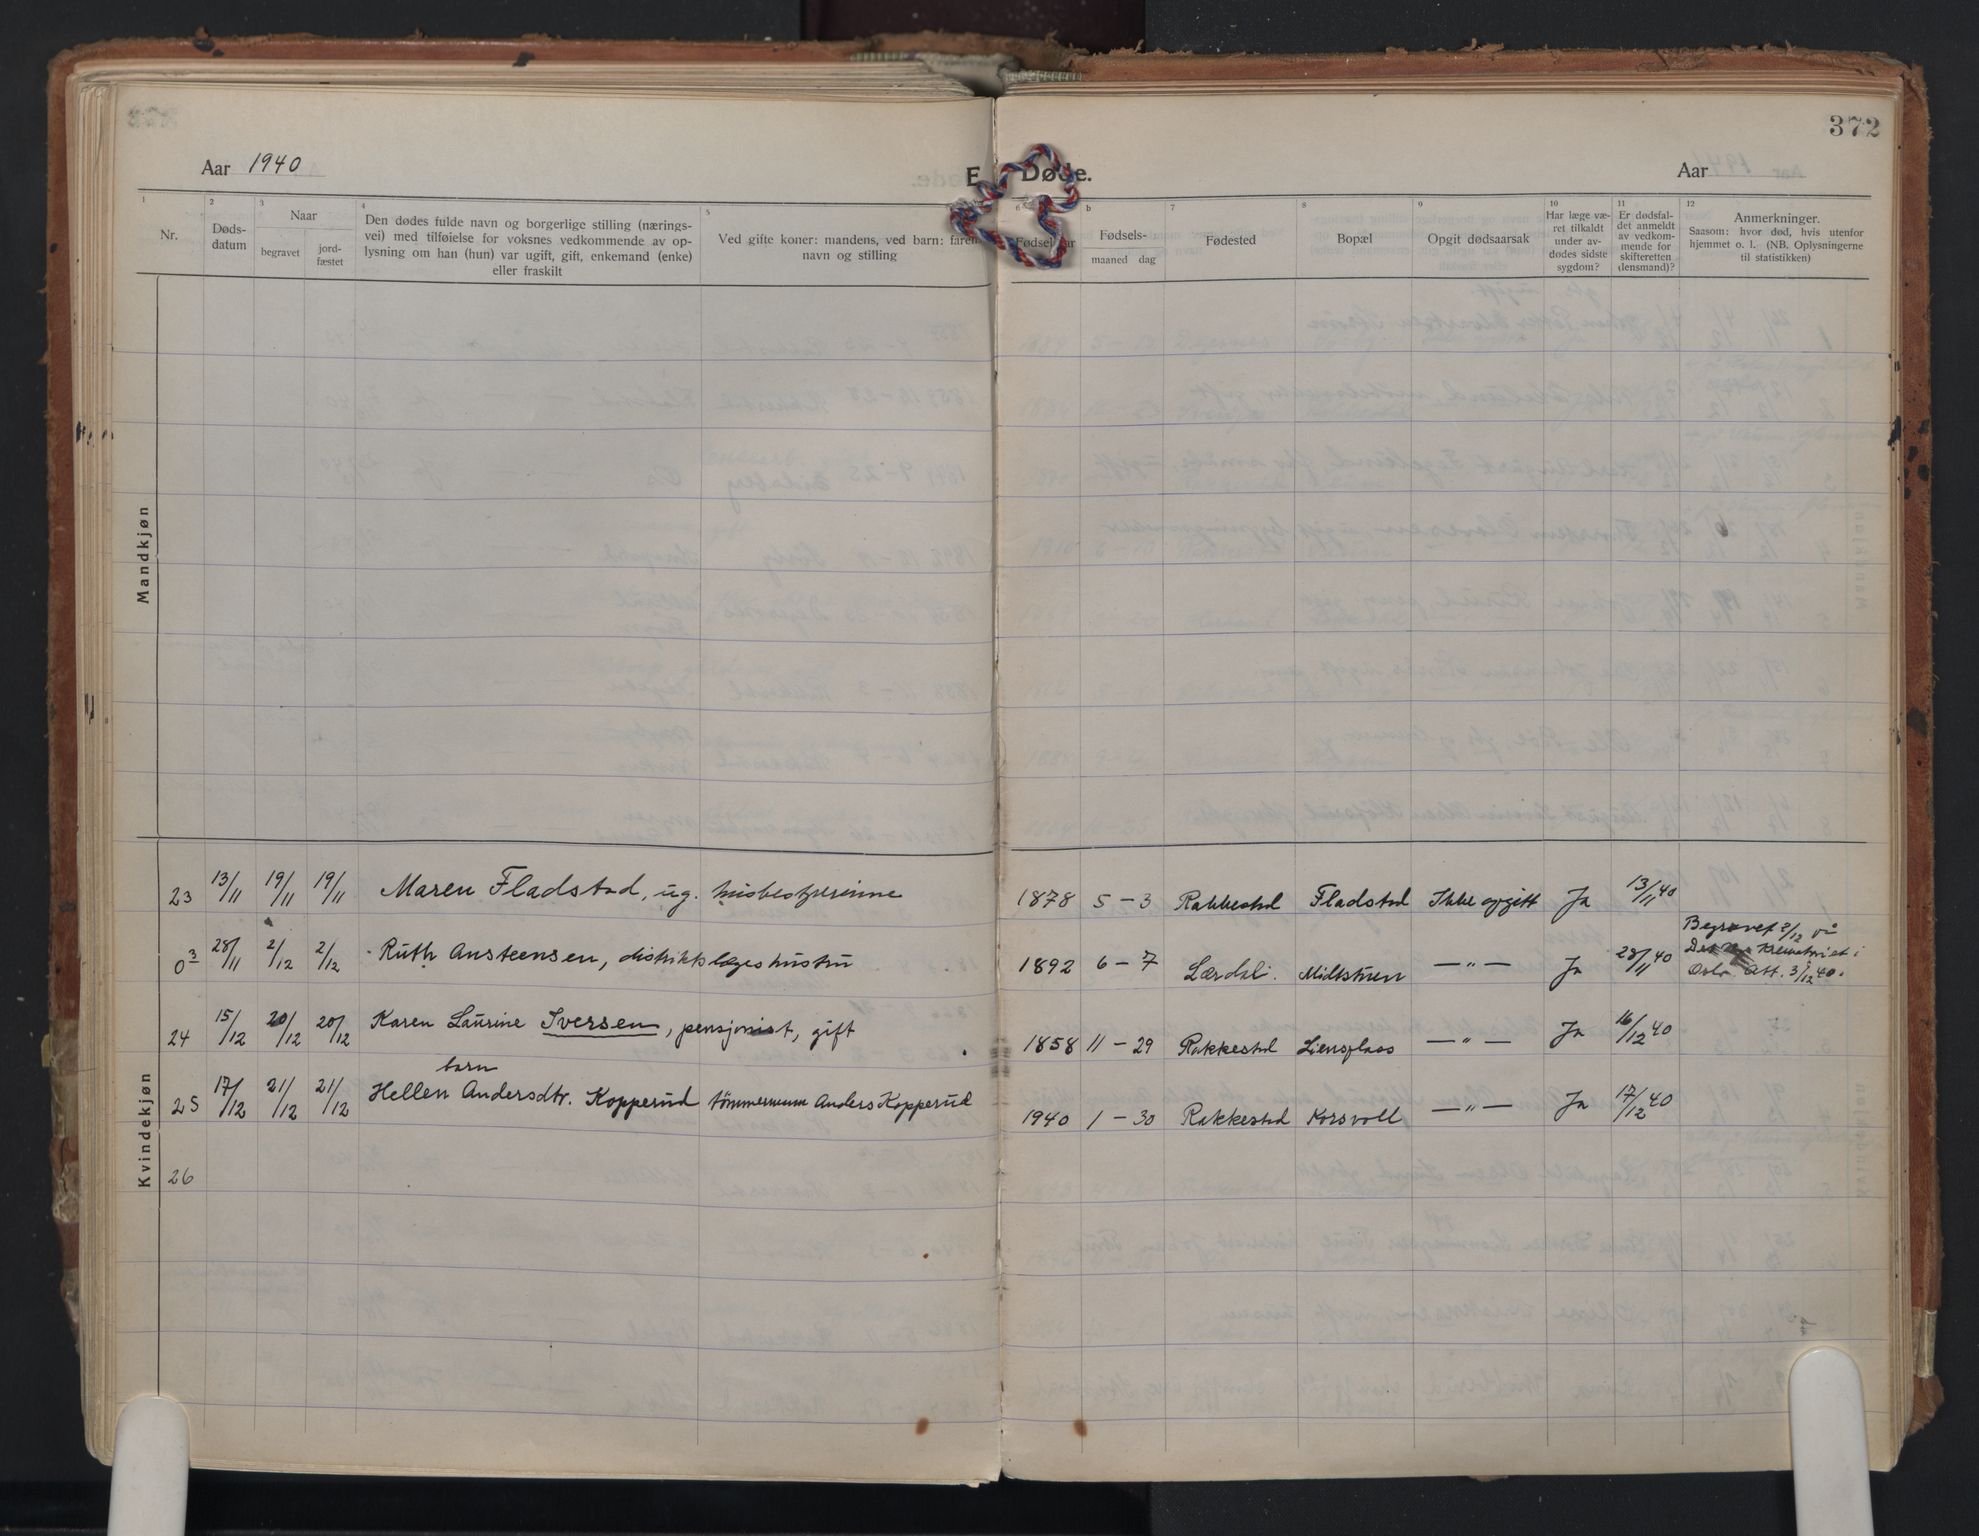 372
Aar 1940
E. Døde.
Aar
1
Nr.
2
Døds-
datum
3
Naar
begravet
jord-
fæstet
4
Den dødes fulde navn og borgerlige stilling (nærings-
vei) med tilføielse for voksnes vedkommende av op-
lysning om han (hun) var ugift, gift, enkemand (enke)
eller fraskilt
5
Ved gifte koner: mandens, ved barn: farens
navn og stilling
6
Fødselsaar
b
Fødsels-
maaned dag
7
Fødested
8
Bopæl
9
Opgit dødsaarsak
10
Har læge væ-
ret tilkaldt
under av-
dødes sidste
sygdom?
11
Er dødsfal-
det anmeldt
av vedkom-
mende for
skifteretten
(lensmand)?
12
Anmerkninger.
Saasom: hvor død, hvis utenfor
hjemmet o. l. (NB. Oplysningerne
til statistikken)
Mandkjøn
Kvindekjøn
23 13/11 19/11 19/11 Maren Fladstad, ug. husbestyrerinne 1878 5 - 3 Rakkestad Fladstad Ikke opgitt Ja 13/11 40
03 28/11 2/12 2/12 Ruth Austeensen, distriktslægeshustru 1892 6 - 7 Lærdal. Midtstuen — " — Ja 28/11 40
Begravet 2/12 på
Krematoriet i
Oslo Att. 3/12 40.
24 15/12 20/12 20/12 Karen Laurine Iversen, pensjonist, gift 1858 11 - 29 Rakkestad Liensplass — " — Ja 16/12 40
barn
25 17/12 21/12 21/12 Hellen Andersdtr. Kopperud tømmermann Anders Kopperud 1940 1 - 30 Rakkestad Korsvoll — " — Ja 17/12 40
26